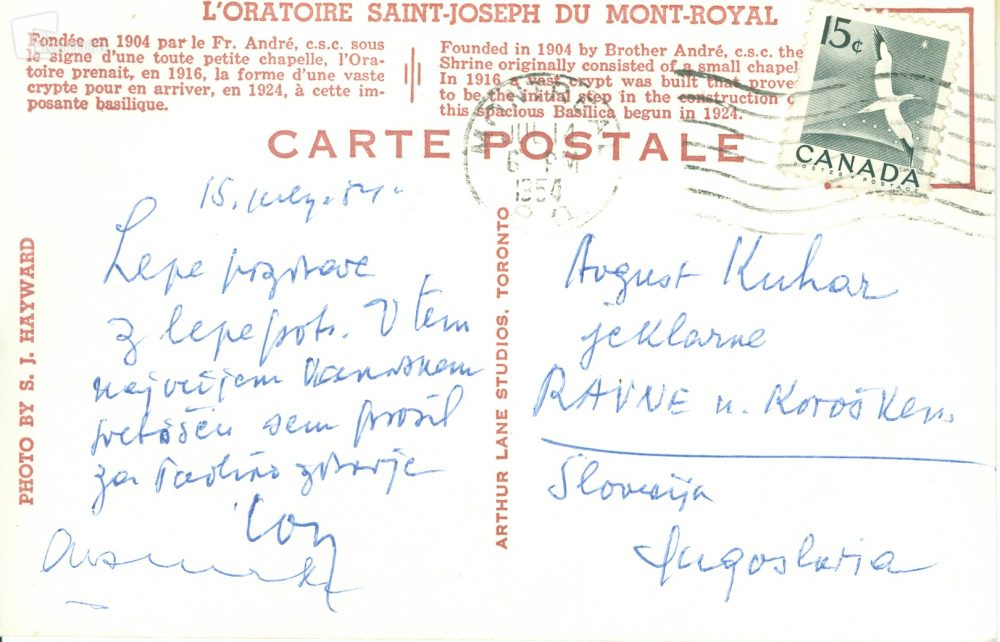 L'ORATOIRE SAINT-JOSEPH DU MONT-ROYAL
Fondée en 1904 par le Fr. André, c.s.c. sous
le signe d'une toute petite chapelle, l'Ora-
toire prenait, en 1916, la forme d'une vaste
crypte pour en arriver, en 1924, à cette im-
posante basilique.
Founded in 1904 by Brother André, c.s.c. the
Shrine originally consisted of a small chapel
In 1916 a vast crypt was built that prove
to be the initial step in the construction o
this spacious Basilica begun in 1924.
CARTE POSTALE
MONTREAL
JUL 14
PM
1954
15¢
CANADA
POSTES · POSTAGE
PHOTO BY S. J. HAYWARD
ARTHUR LANE STUDIOS, TORONTO
15. july. 54.
Lepe pozdrave
z lepe poti. V tem
največjem
svetišču sem prosil
za zdravje
August Kuhar
jeklarne
RAVNE n. Koroškem.
Slovenija
Jugoslavia